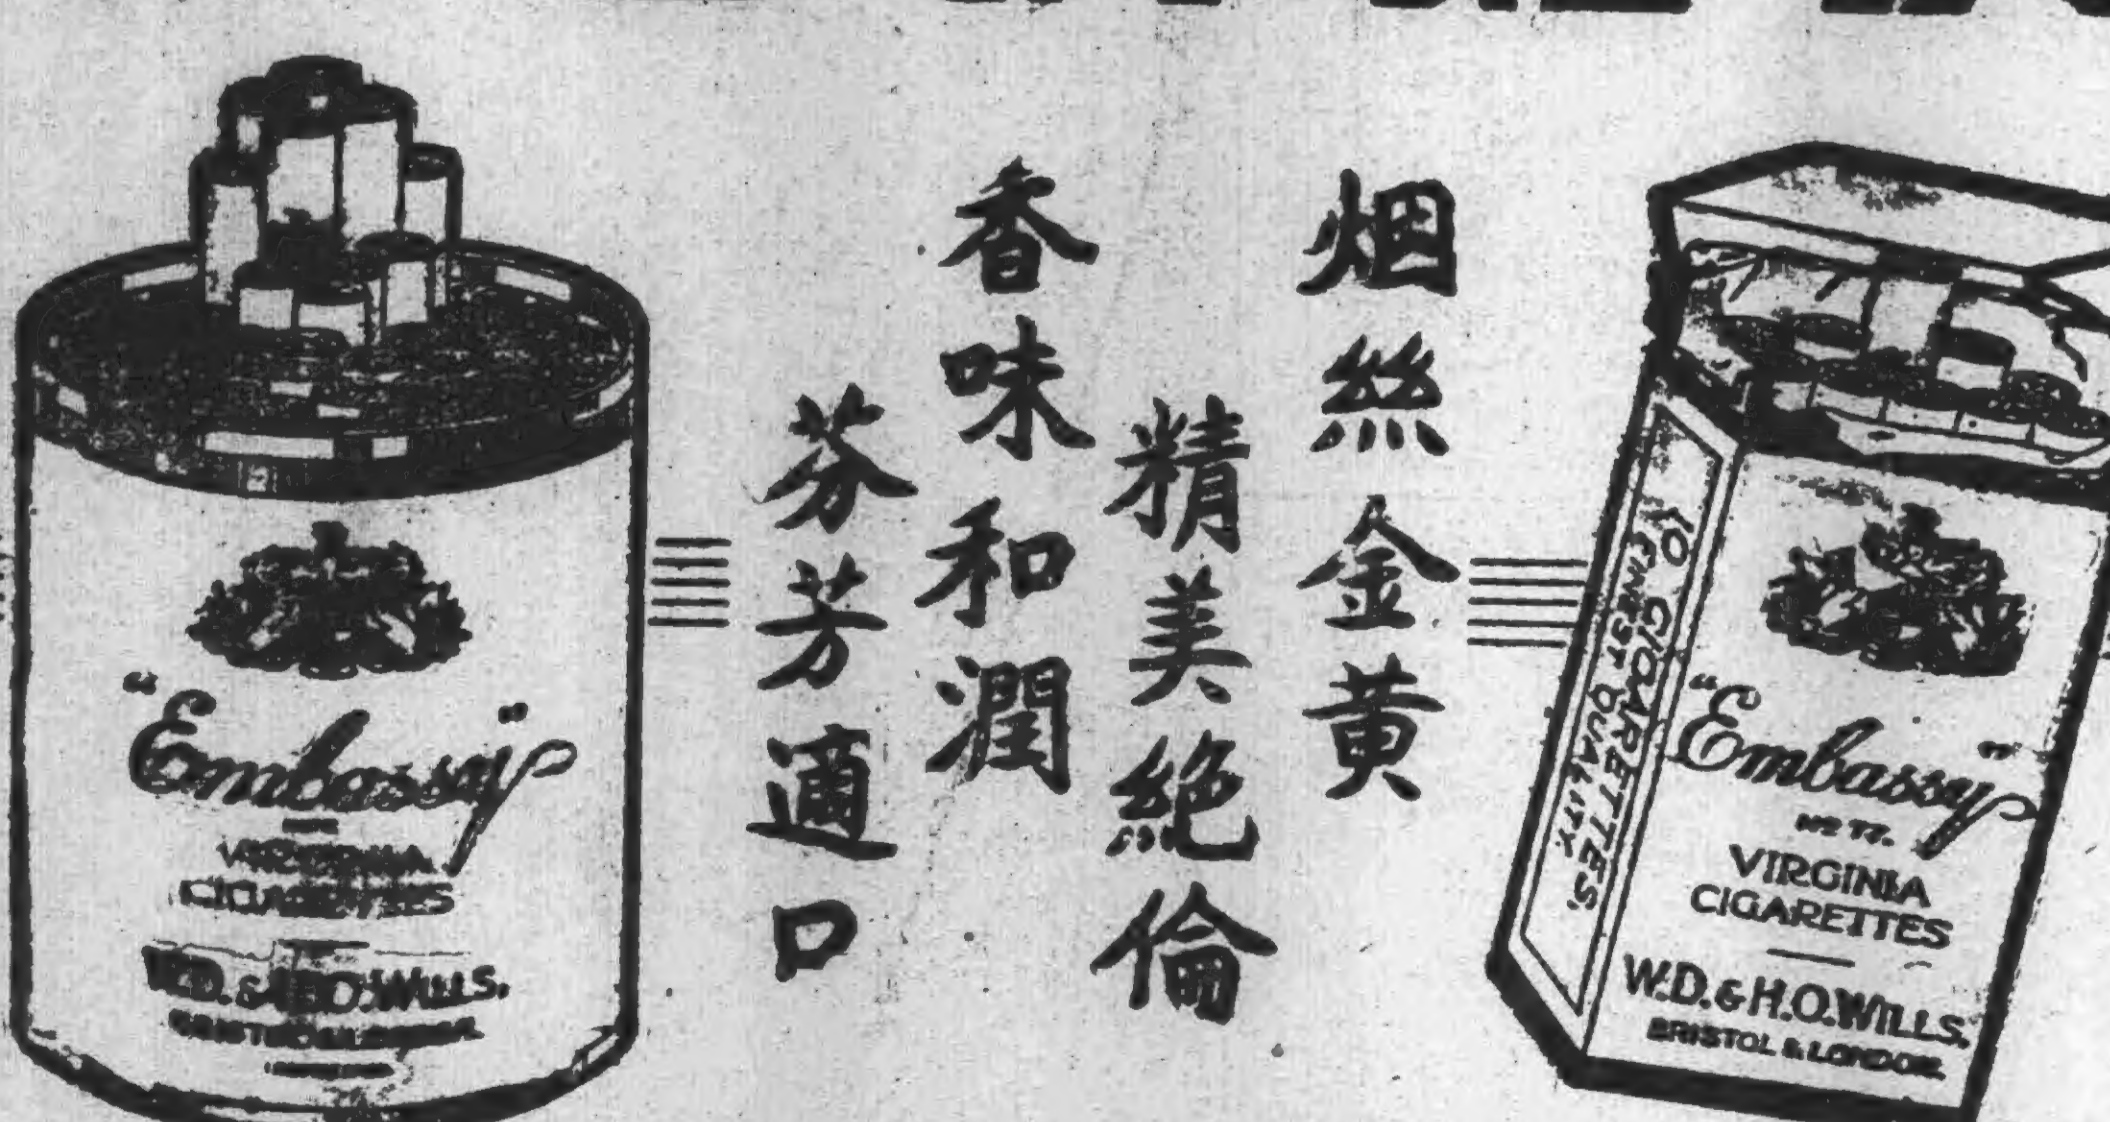 烟絲金黃
精美絕倫
香味和潤
芬芳適口
"Embassy"
VIRGINIA
CIGARETTES
W.D. & H.O. WILLS.
10 CIGARETTES.
FINEST QUALITY.
"Embassy"
Nº 77.
VIRGINIA
CIGARETTES
W.D. & H.O. WILLS.
BRISTOL & LONDON.